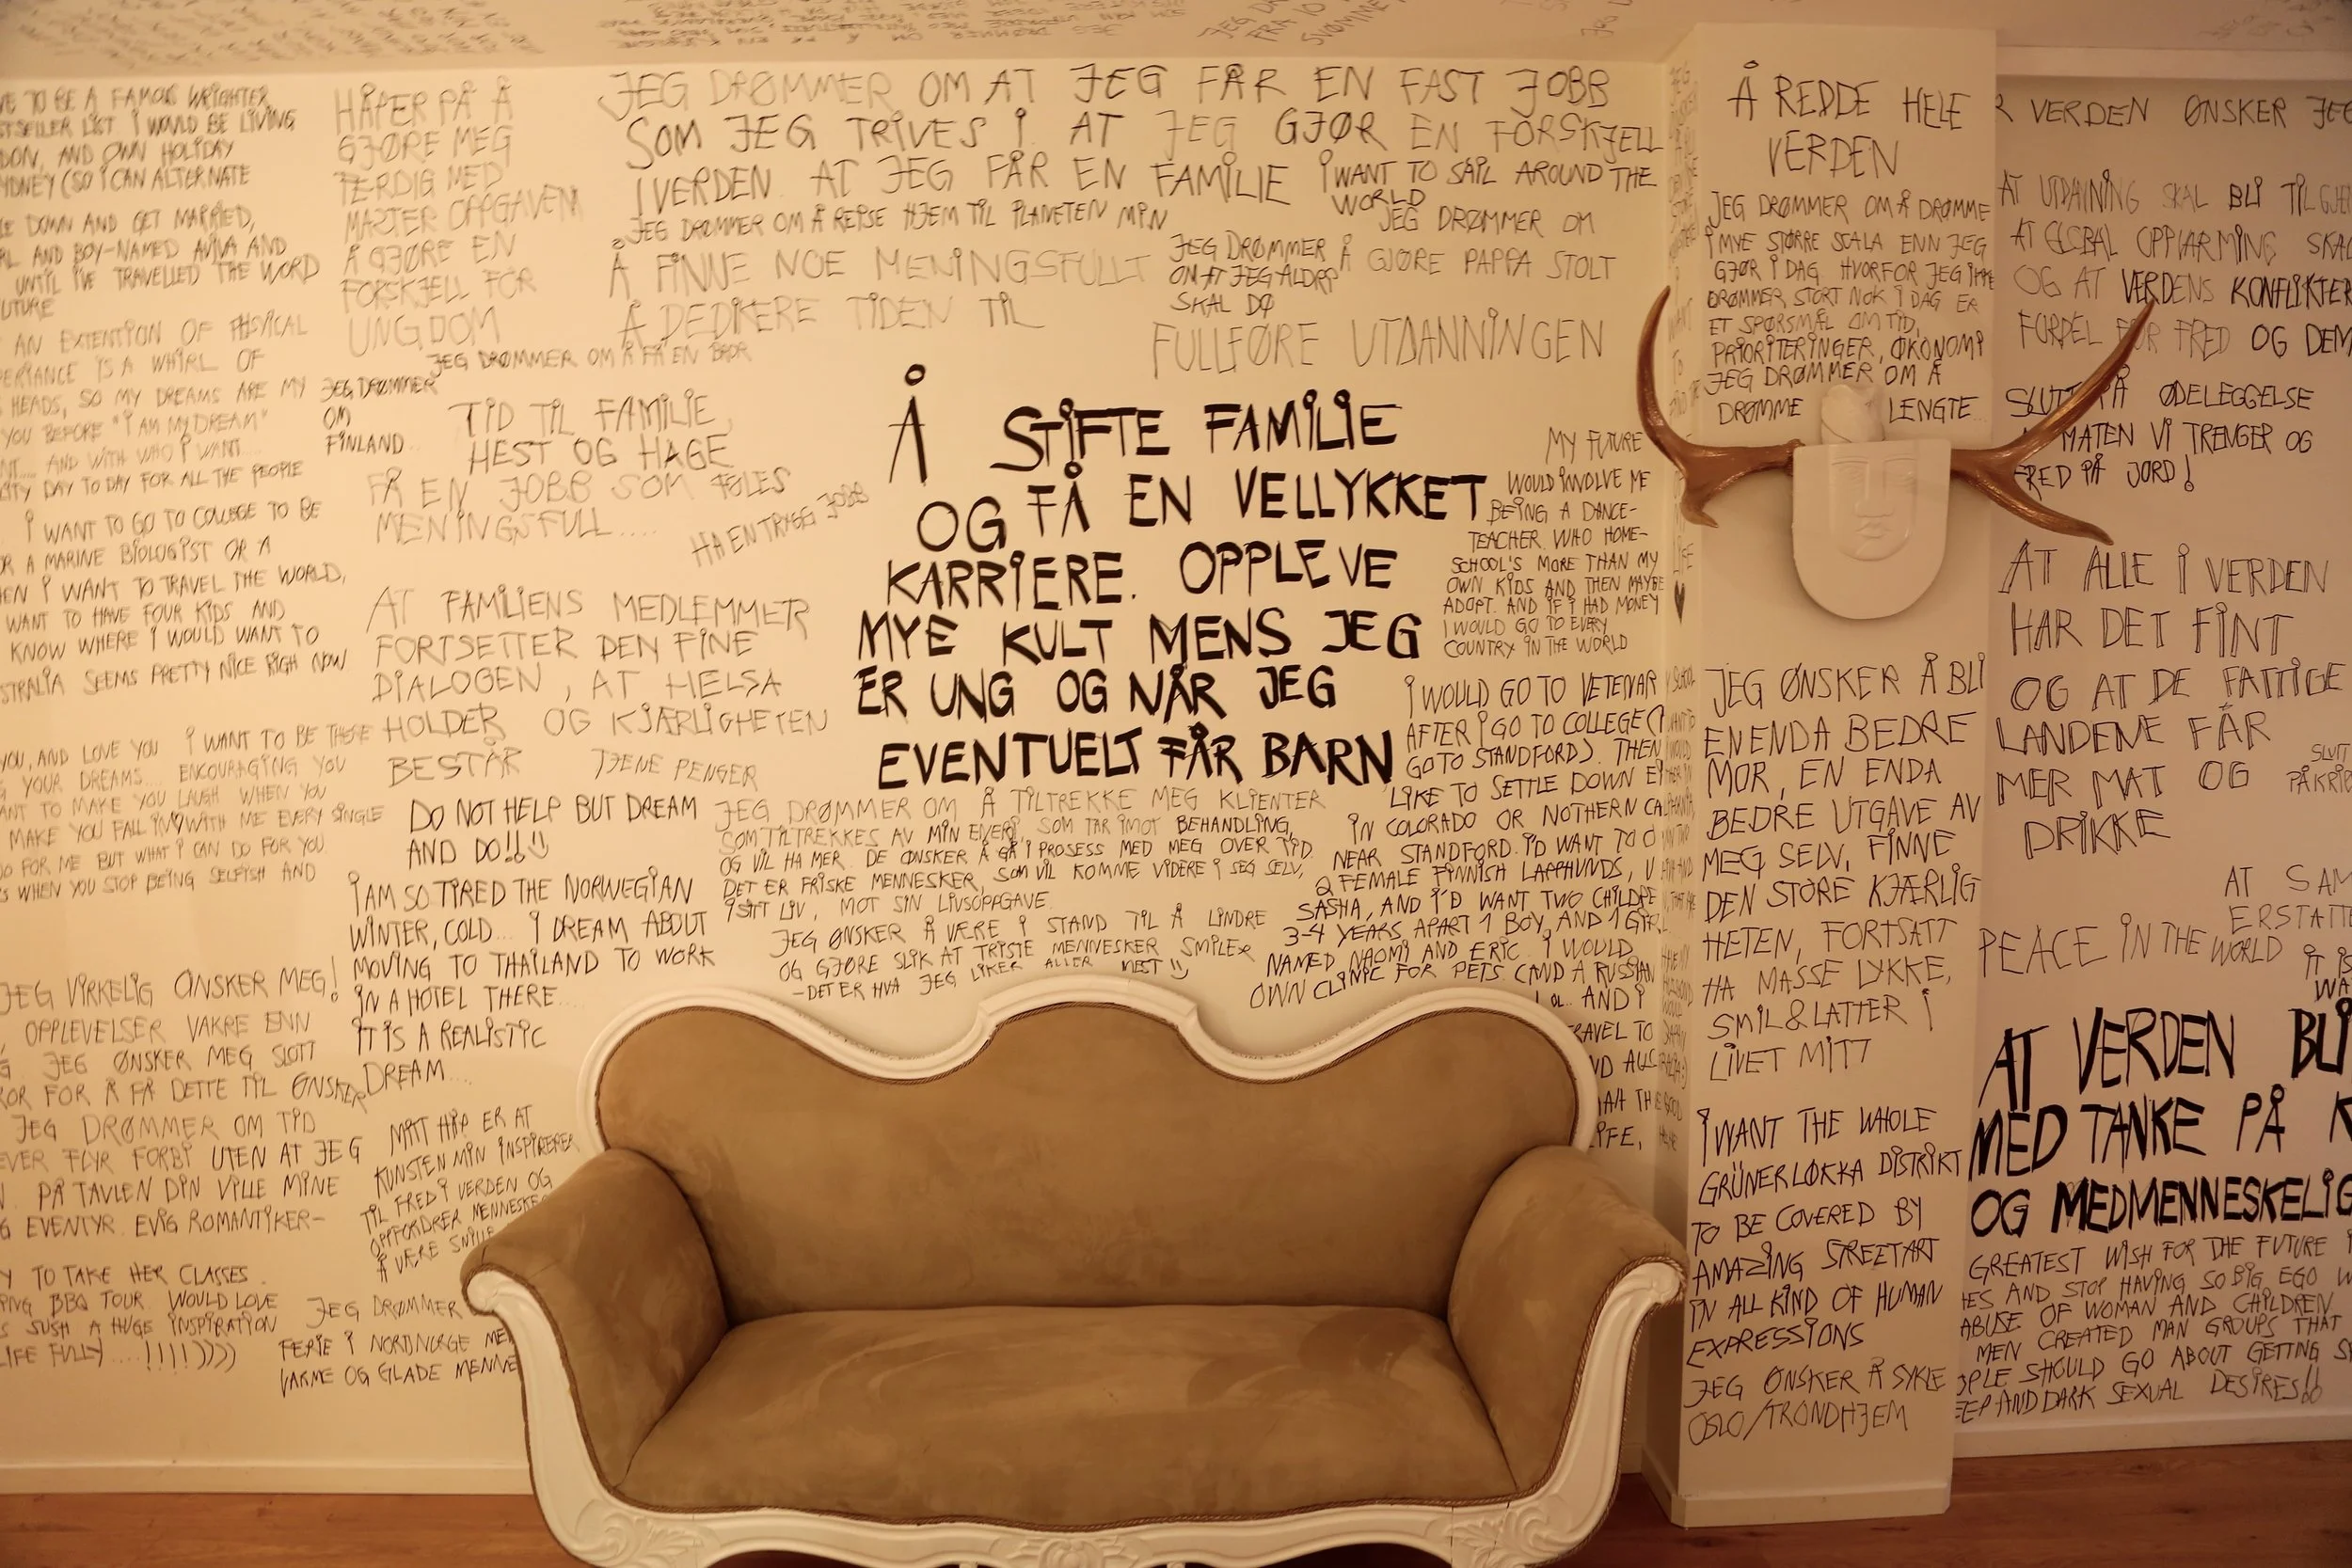 VE TO BE A FAMOUS WRIGHTER
STSELLER LIST. I WOULD BE LIVING
DON, AND OWN HOLIDAY
YDNEY (SO I CAN ALTERNATE
LE DOWN AND GET MARRIED,
RL AND BOY-NAMED AVIVA AND
UNTIL I'VE TRAVELLED THE WORD
UTURE
AN EXTENTION OF PHSYICAL
PERIANCE IS A WHIRL OF
HEADS, SO MY DREAMS ARE MY
YOU BEFORE "I AM MY DREAM"
NT.... AND WITH WHO I WANT....
CITY DAY TO DAY FOR ALL THE PEOPLE
I WANT TO GO TO COLLEGE TO BE
OR A MARINE BIOLOGIST OR A
HEN I WANT TO TRAVEL THE WORLD,
WANT TO HAVE FOUR KIDS AND
KNOW WHERE I WOULD WANT TO
STRALIA SEEMS PRETTY NICE RIGH NOW
YOU, AND LOVE YOU I WANT TO BE THERE
G YOUR DREAMS.... ENCOURAGING YOU
ANT TO MAKE YOU LAUGH WHEN YOU
MAKE YOU FALL IN WITH ME EVERY SINGLE
DO FOR ME BUT WHAT I CAN DO FOR YOU
S WHEN YOU STOP BEING SELFISH AND
JEG VIRKELIG ØNSKER MEG!
OPPLEVELSER VAKRE ENN
G. JEG ØNSKER MEG SLOTT
ROR FOR Å FÅ DETTE TIL ØNSKER
JEG DRØMMER OM TID
EVER FLYR FORBI UTEN AT JEG
N. PÅ TAVLEN DIN VILLE MINE
G EVENTYR. EVIG ROMANTIKER-
Y TO TAKE HER CLASSES.
PING BBQ TOUR. WOULD LOVE
S SUSH A HUGE INSPIRATION
LIFE FULLY....!!!!))))
HÅPER PÅ Å
GJØRE MEG
FERDIG MED
MASTER OPPGAVEN
Å GJØRE EN
FORSKJELL FOR
UNGDOM
JEG DRØMMER OM Å FÅ EN BROR
JEG DRØMMER
OM
FINLAND...
TID TIL FAMILIE,
HEST OG HAGE
FÅ EN JOBB SOM FØLES
MENINGSFULL....
HA EN TRYGG JOBB
AT FAMILIENS MEDLEMMER
FORTSETTER DEN FINE
DIALOGEN, AT HELSA
HOLDER OG KJÆRLIGHETEN
BESTÅR
TJENE PENGER
DO NOT HELP BUT DREAM
AND DO!!
I AM SO TIRED THE NORWEGIAN
WINTER, COLD... I DREAM ABOUT
MOVING TO THAILAND TO WORK
IN A HOTEL THERE...
IT IS A REALISTIC
DREAM....
MITT HÅP ER AT
KUNSTEN MIN INSPIRERER
TIL FRED I VERDEN OG
OPPFORDRER MENNESKE
Å VÆRE SNILLE
JEG DRØMMER
FERIE I NORDNORGE ME
VARME OG GLADE MENNE
JEG DRØMMER OM AT JEG FÅR EN FAST JOBB
SOM JEG TRIVES I. AT JEG GJØR EN FORSKJELL
I VERDEN. AT JEG FÅR EN FAMILIE
I WANT TO SAIL AROUND THE
WORLD
JEG DRØMMER OM Å REISE HJEM TIL PLANETEN MIN
JEG DRØMMER OM
Å GJØRE PAPPA STOLT
Å FINNE NOE MENINGSFULLT
Å DEDIKERE TIDEN TIL
JEG DRØMMER
OM AT JEG ALDRI
SKAL DØ
FULLFØRE UTDANNINGEN
Å STIFTE FAMILIE
OG FÅ EN VELLYKKET
KARRIERE. OPPLEVE
MYE KULT MENS JEG
ER UNG OG NÅR JEG
EVENTUELT FÅR BARN
MY FUTURE
WOULD INVOLVE ME
BEING A DANCE-
TEACHER. WHO HOME-
SCHOOL'S MORE THAN MY
OWN KIDS AND THEN MAYBE
ADOPT. AND IF I HAD MONEY
I WOULD GO TO EVERY
COUNTRY IN THE WORLD
JEG DRØMMER OM Å TILTREKKE MEG KLIENTER
SOM TILTREKKES AV MIN ENERGI, SOM TAR IMOT BEHANDLING,
OG VIL HA MER. DE ØNSKER Å GÅ I PROSESS MED MEG OVER TID.
DET ER FRISKE MENNESKER, SOM VIL KOMME VIDERE I SEG SELV,
I SITT LIV, MOT SIN LIVSOPPGAVE.
JEG ØNSKER Å VÆRE I STAND TIL Å LINDRE
OG GJØRE SLIK AT TRISTE MENNESKER SMILER
-DET ER HVA JEG LIKER ALLER BEST
I WOULD GO TO VETENAR
AFTER I GO TO COLLEGE (I
GO TO STANDFORD). THEN
LIKE TO SETTLE DOWN EI
IN COLORADO OR NOTHERN CA
NEAR STANDFORD. I'D WANT TO O
2 FEMALE FINNISH LAPPHUNDS,
SASHA, AND I'D WANT TWO CHILDRE
3-4 YEARS APART 1 BOY, AND 1 GIRL
NAMED NAOMI AND ERIC. I WOULD
OWN CLINIC FOR PETS. (AND A RUSSIAN
LOL. AND I
RAVEL TO
ND ALL
LIFE,
Å REDDE HELE
VERDEN
JEG DRØMMER OM Å DRØMME
I MYE STØRRE SCALA ENN JEG
GJØR I DAG. HVORFOR JEG IKKE
DRØMMER STORT NOK I DAG ER
ET SPØRSMÅL OM TID,
PRIORITERINGER, ØKONOMI
JEG DRØMMER OM Å
DRØMME LENGTE
JEG ØNSKER Å BLI
EN ENDA BEDRE
MOR, EN ENDA
BEDRE UTGAVE AV
MEG SELV, FINNE
DEN STORE KJÆRLIG
HETEN, FORTSATT
HA MASSE LYKKE,
SMIL & LATTER I
LIVET MITT
I WANT THE WHOLE
GRÜNERLØKKA DISTRIKT
TO BE COVERED BY
AMAZING STREETART
IN ALL KIND OF HUMAN
EXPRESSIONS
JEG ØNSKER Å SYKLE
OSLO/TRONDHJEM
R VERDEN ØNSKER JEG
AT UTDANING SKAL BLI TILGJEN
AT GLOBAL OPPVARMING SKAL
OG AT VERDENS KONFLIKTER
FORDEL FOR FRED OG DEM
SLUTT PÅ ØDELEGGELSE
MATEN VI TRENGER OG
FRED PÅ JORD!
AT ALLE I VERDEN
HAR DET FINT
OG AT DE FATTIGE
LANDENE FÅR
MER MAT OG
DRIKKE
SLUTT
PÅ KRIG
AT SAM
ERSTATT
PEACE IN THE WORLD
IT IS
WA
AT VERDEN BLI
MED TANKE PÅ K
OG MEDMENNESKELIG
GREATEST WISH FOR THE FUTURE I
HES AND STOP HAVING SO BIG EGO
ABUSE OF WOMAN AND CHILDREN
MEN CREATED MAN GROUPS THAT
OPLE SHOULD GO ABOUT GETTING
EEP AND DARK SEXUAL DESIRES!!